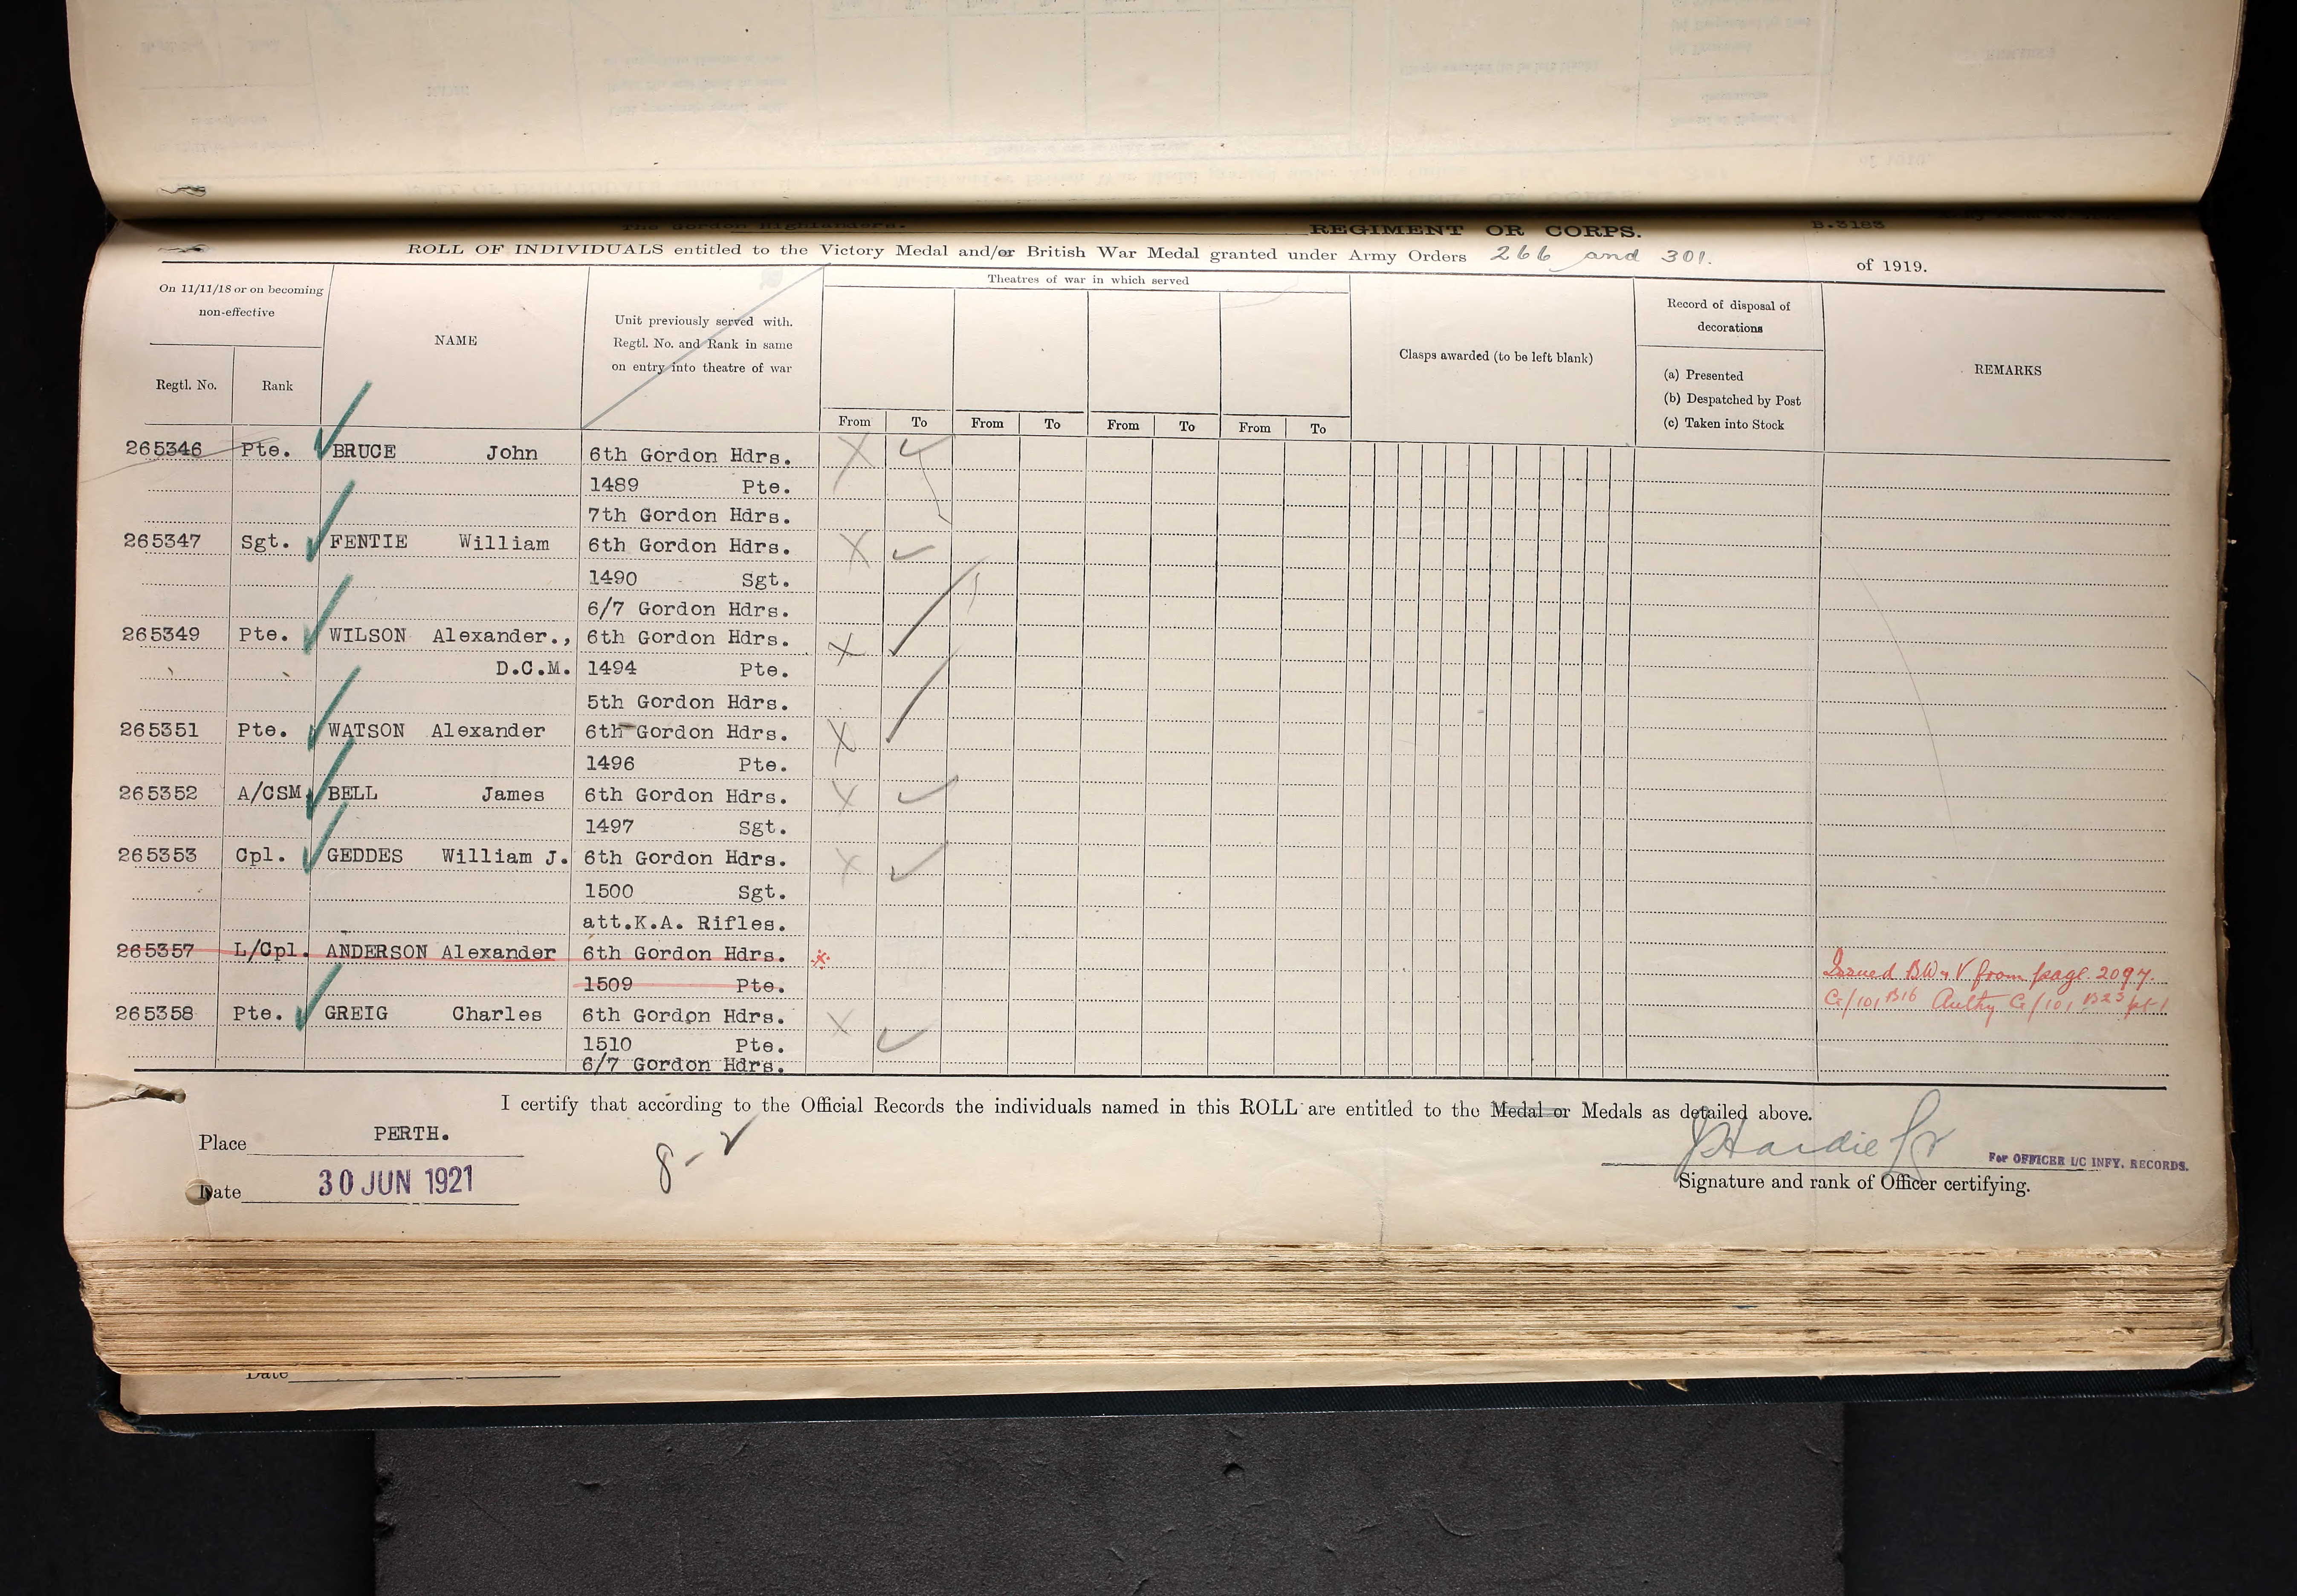 The Gordon Highlanders. REGIMENT OR CORPS. B.3183
ROLL OF INDIVIDUALS entitled to the Victory Medal and/or British War Medal granted under Army Orders 266 and 301. of 1919.
On 11/11/18 or on becoming non-effective
Regtl. No.
Rank
NAME
Unit previously served with.
Regtl. No. and Rank in same
on entry into theatre of war
Theatres of war in which served
From To From To From To From To
Clasps awarded (to be left blank)
Record of disposal of
decorations
(a) Presented
(b) Despatched by Post
(c) Taken into Stock
REMARKS
265346 Pte. BRUCE John 6th Gordon Hdrs.
1489 Pte.
7th Gordon Hdrs.
265347 Sgt. FENTIE William 6th Gordon Hdrs.
1490 Sgt.
6/7 Gordon Hdrs.
265349 Pte. WILSON Alexander., 6th Gordon Hdrs.
D.C.M. 1494 Pte.
5th Gordon Hdrs.
265351 Pte. WATSON Alexander 6th Gordon Hdrs.
1496 Pte.
265352 A/CSM BELL James 6th Gordon Hdrs.
1497 Sgt.
265353 Cpl. GEDDES William J. 6th Gordon Hdrs.
1500 Sgt.
att.K.A. Rifles.
265357 L/Cpl. ANDERSON Alexander 6th Gordon Hdrs. Issued BW & V from page 2097.
1509 Pte. G/101 B16 Authy G/101 B23 pt 1
265358 Pte. GREIG Charles 6th Gordon Hdrs.
1510 Pte.
6/7 Gordon Hdrs.
I certify that according to the Official Records the individuals named in this ROLL are entitled to the Medal or Medals as detailed above.
Place PERTH.
8-2
J Hardie
For OFFICER I/C INFY. RECORDS.
Date 30 JUN 1921
Signature and rank of Officer certifying.
Date